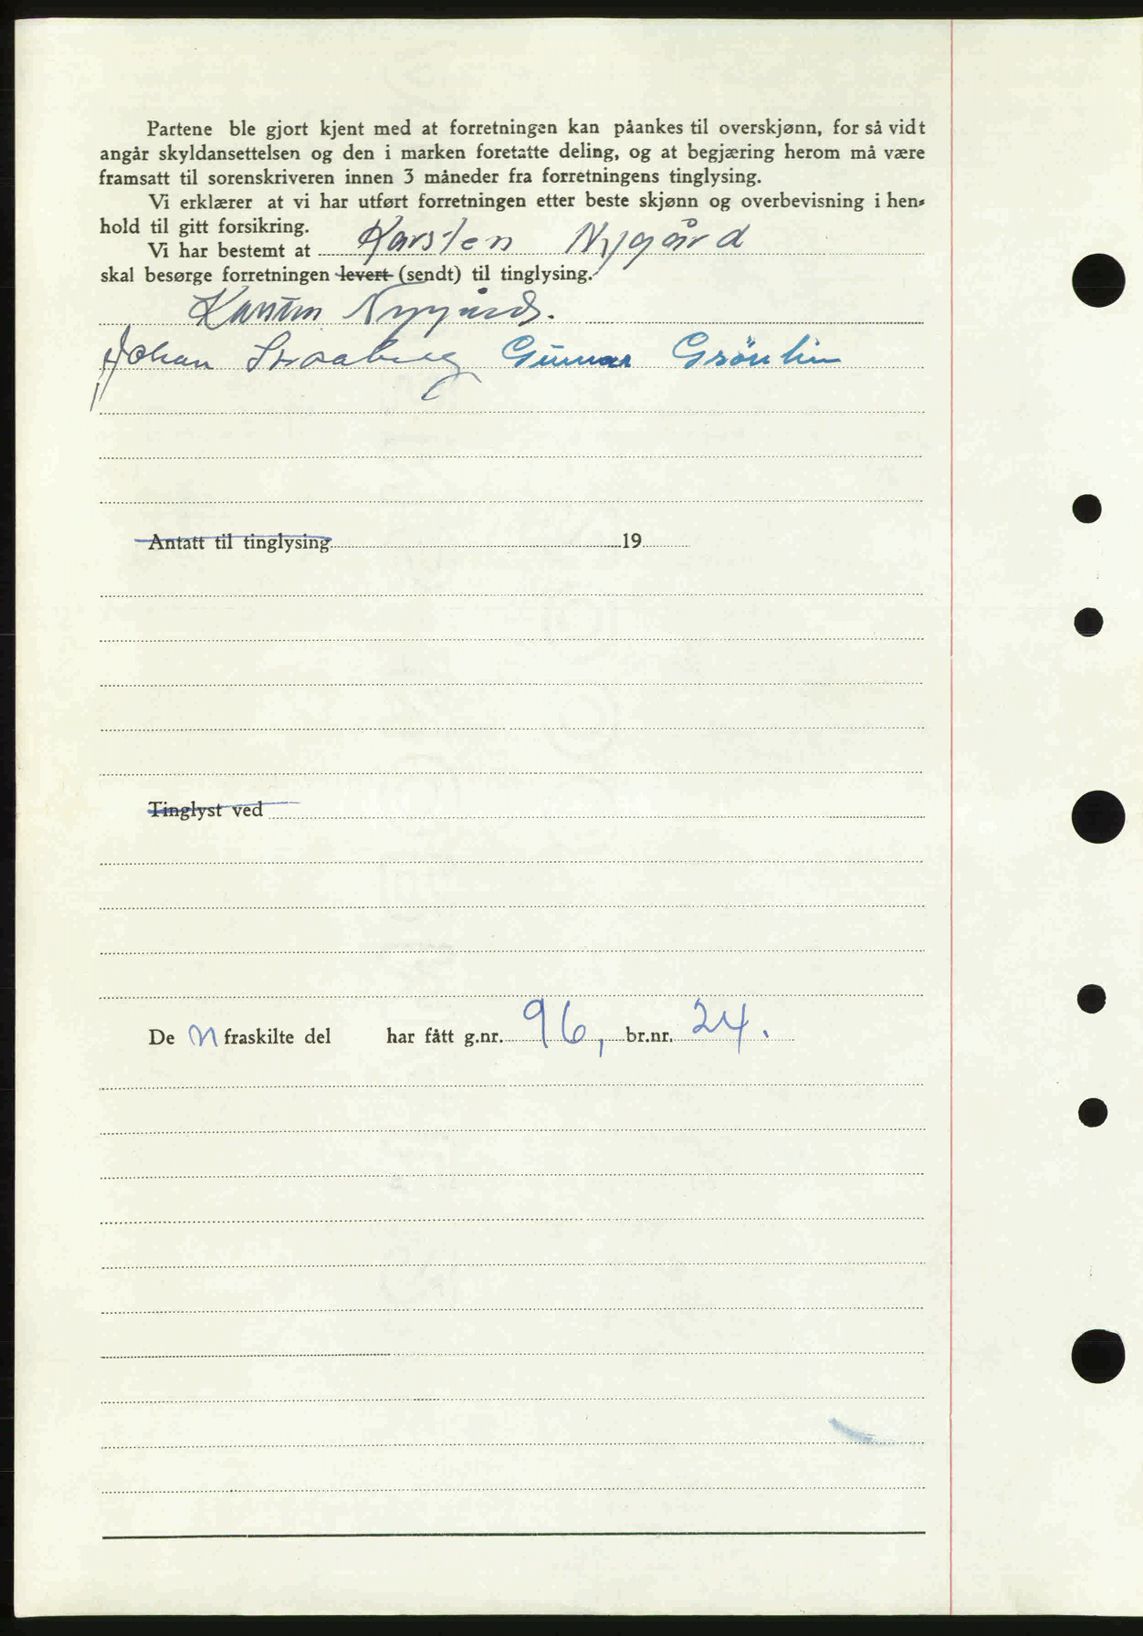 Partene ble gjort kjent med at forretningen kan påankes til overskjønn, for så vidt
angår skyldansettelsen og den i marken foretatte deling, og at begjæring herom må være
framsatt til sorenskriveren innen 3 måneder fra forretningens tinglysing.
Vi erklærer at vi har utført forretningen etter beste skjønn og overbevisning i hen-
hold til gitt forsikring.
Vi har bestemt at Karsten Nygård
skal besørge forretningen levert (sendt) til tinglysing.
Karsten Nygård.
Johan Straaberg Gunnar Grönlin
Antatt til tinglysing 19
Tinglyst ved
De n fraskilte del har fått g.nr. 96, br.nr. 24.